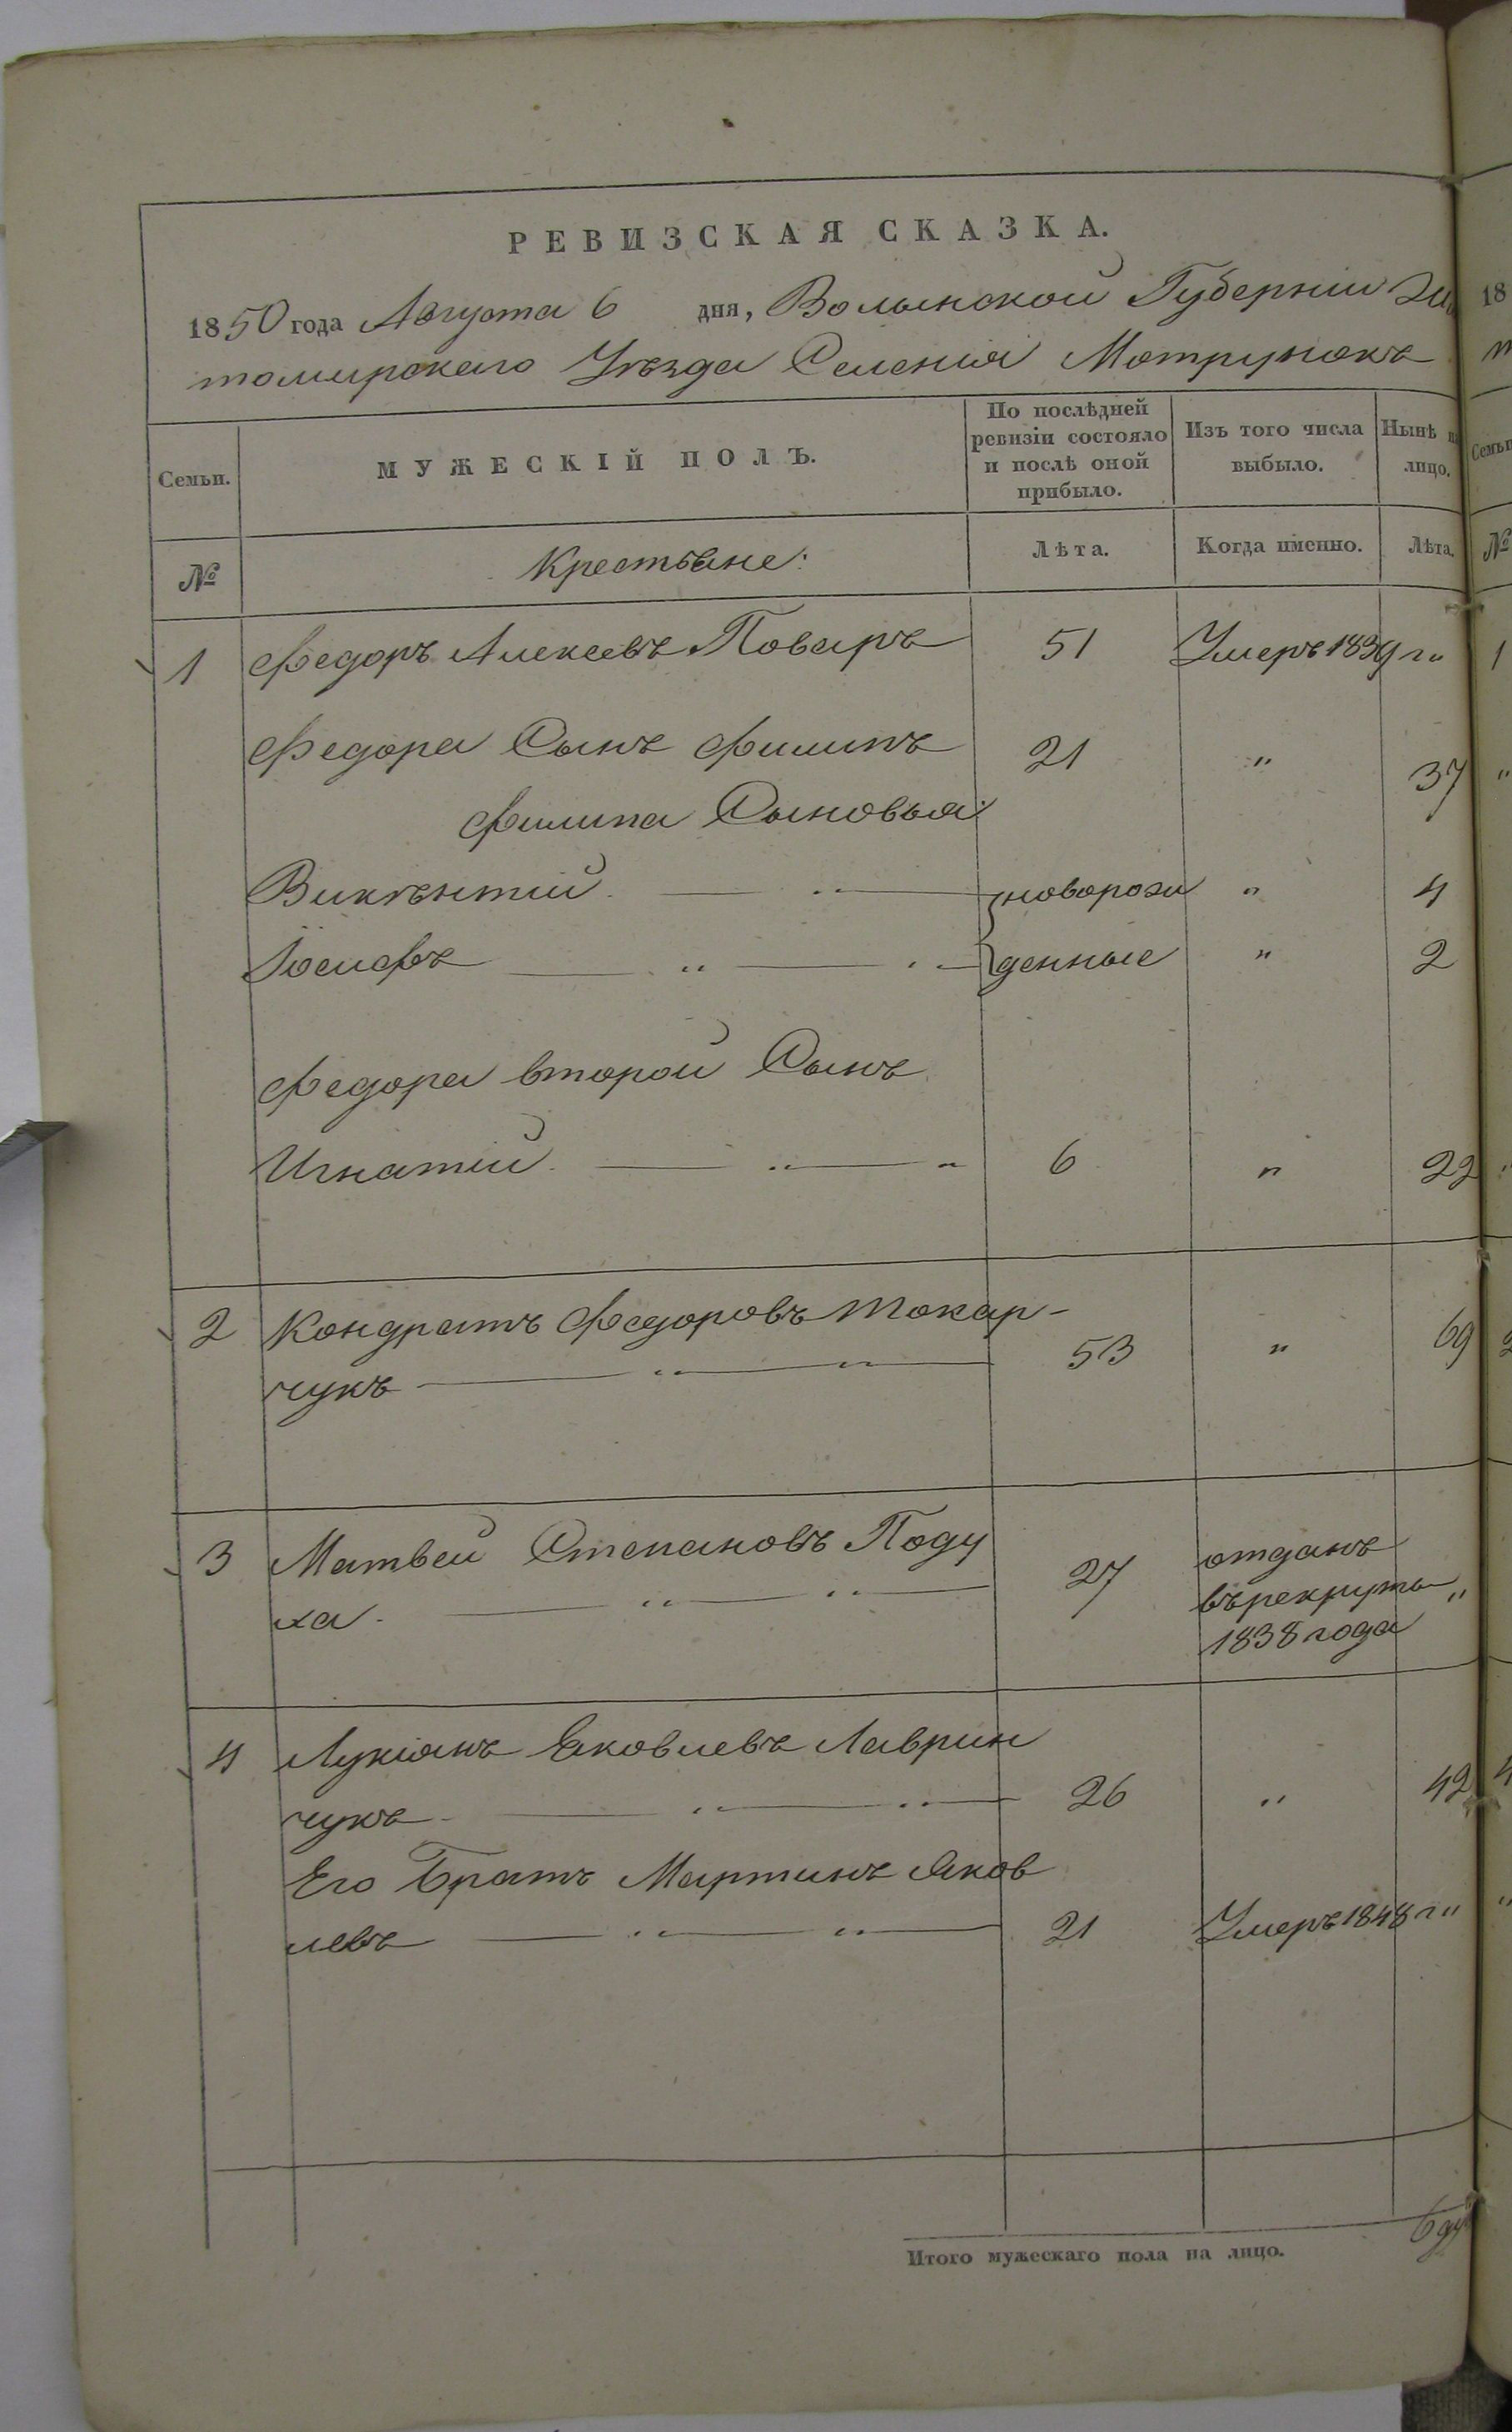 РЕВИЗСКАЯ СКАЗКА.
1850 года Августа 6 дня, Волынской Губерніи Жи
томирскаго Уѣзда Селенія Мотрунокъ
Семьи.
МУЖЕСКІЙ ПОЛЪ.
По послѣдней
ревизіи состояло
и послѣ оной
прибыло.
Изъ того числа
выбыло.
Нынѣ на
лицо.
№
Крестьяне:
Лѣта.
Когда именно.
Лѣта.
1 Федоръ Алексевъ Поваръ 51 Умеръ 1839 г „
Федора Сынъ Филипъ 21 „ 37
Филипа Сыновья:
Викѣнтій новорож „ 4
Іосифъ денные „ 2
Федора второй Сынъ
Игнатій 6 „ 22
2 Кондратъ Федоровъ Токар-
чукъ 53 „ 69
3 Матвей Степановъ Поду
ха 27 отданъ
въ рекруты „
1838 года
4 Лукіянъ Яковлевъ Лаврин
чукъ 26 „ 42
Его Братъ Мартинъ Яков
левъ 21 Умеръ 1848 г „
Итого мужескаго пола на лицо. 6